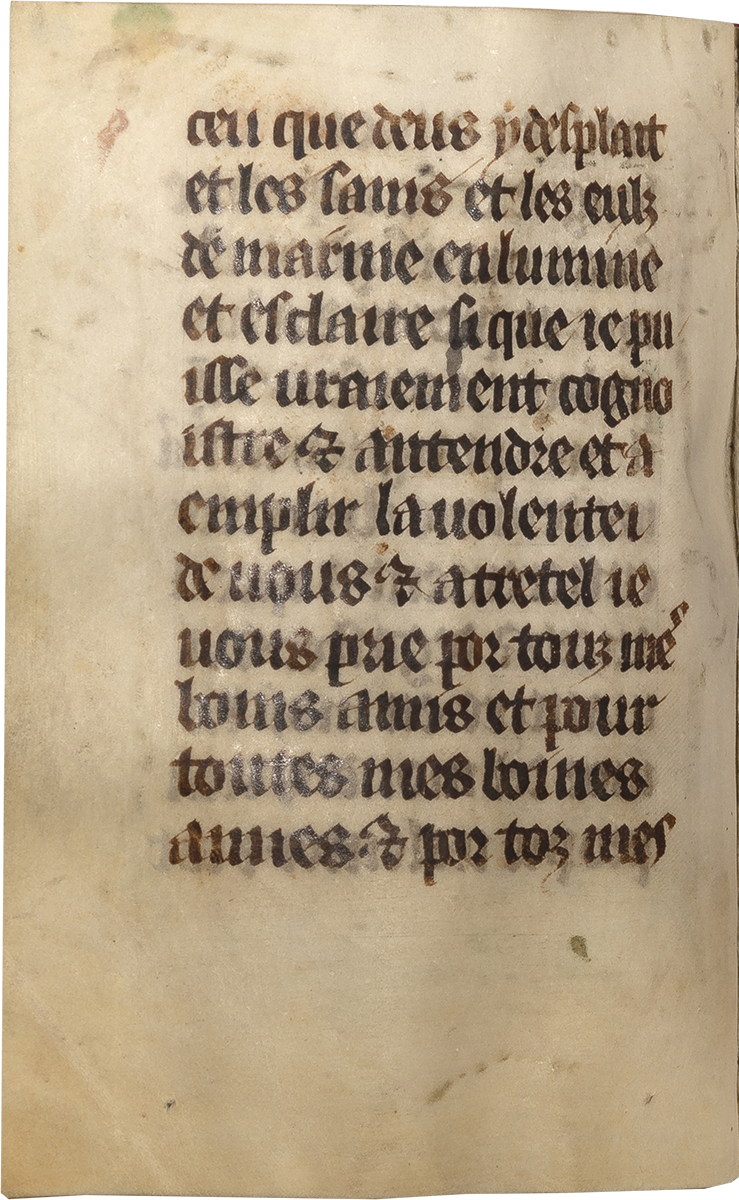 ceu que deus y desplait
et les sanis et les eulz
de marme enlumine
et esclaire si que ie pu
isse uraiement cogno
istre ⁊ antendre et a
emplir la uolentei
de uous ⁊ attretel ie
uous prie por touz mes
bouis amis et pour
toutes mes boines
amies ⁊ por toz mes